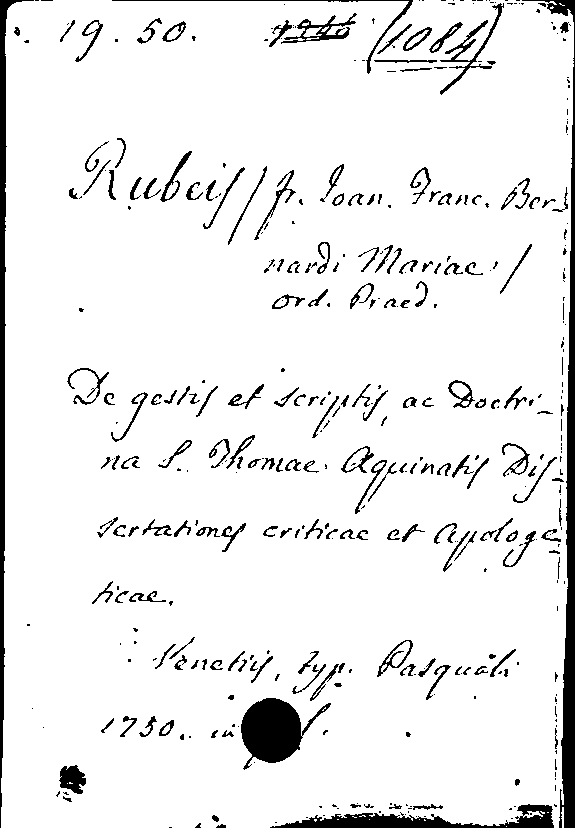 19.50. (1084)
Rubeis / fr. Ioan. Franc. Ber-
nardi Mariae /
ord. Praed.
De gestis et scriptis, ac Doctri-
na S. Thomae Aquinatis Dis-
sertationes criticae et Apologe-
ticae.
Venetiis, typ. Pasquali
1750. in